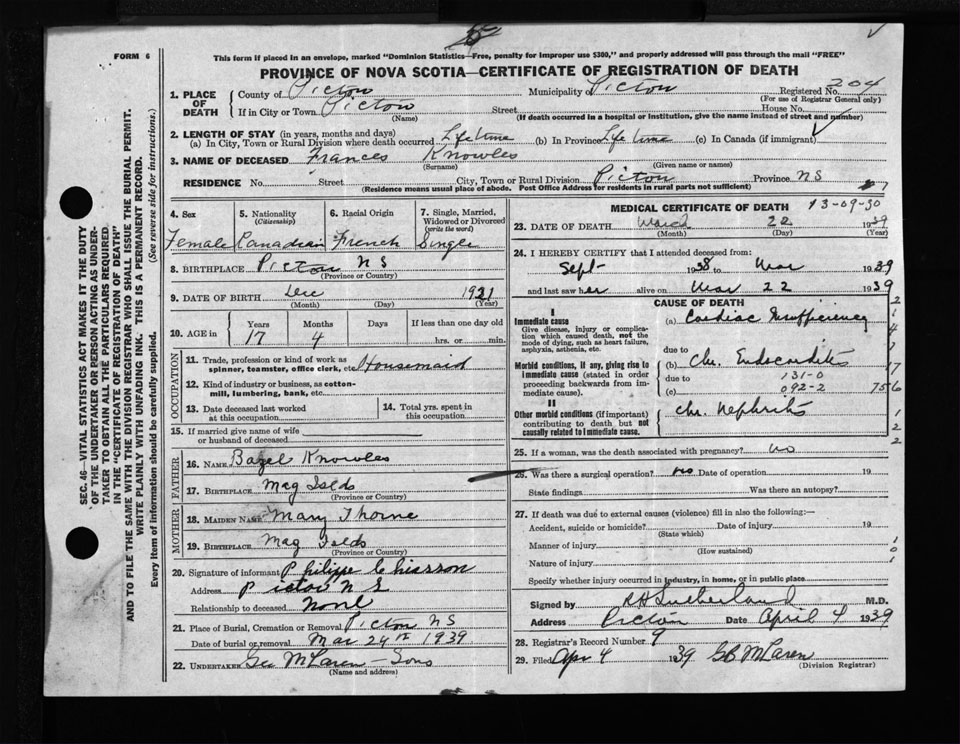 FORM 6
5
This form if placed in an envelope, marked "Dominion Statistics—Free, penalty for improper use $300," and properly addressed will pass through the mail "FREE"
PROVINCE OF NOVA SCOTIA—CERTIFICATE OF REGISTRATION OF DEATH
1. PLACE OF DEATH
County of Pictou Municipality of Pictou Registered No. 204
(For use of Registrar General only)
If in City or Town Pictou Street House No.
(Name) (If death occurred in a hospital or institution, give the name instead of street and number)
2. LENGTH OF STAY (in years, months and days)
(a) In City, Town or Rural Division where death occurred Life time (b) In Province Life time (c) In Canada (if immigrant)
3. NAME OF DECEASED Frances Knowles
(Surname) (Given name or names)
RESIDENCE No. Street City, Town or Rural Division Pictou Province NS
(Residence means usual place of abode. Post Office Address for residents in rural parts not sufficient)
4. Sex
Female
5. Nationality
(Citizenship)
Canadian
6. Racial Origin
French
7. Single, Married, Widowed or Divorced
(write the word)
Single
8. BIRTHPLACE Pictou NS
(Province or Country)
9. DATE OF BIRTH Dec 1921
(Month) (Day) (Year)
10. AGE in
Years Months Days If less than one day old
17 4 hrs. or min.
OCCUPATION
11. Trade, profession or kind of work as spinner, teamster, office clerk, etc. Housemaid
12. Kind of industry or business, as cotton-mill, lumbering, bank, etc.
13. Date deceased last worked at this occupation
14. Total yrs. spent in this occupation
15. If married give name of wife or husband of deceased
FATHER
16. NAME Bazel Knowles
17. BIRTHPLACE Mag Islds
MOTHER
18. MAIDEN NAME Mary Thorne
19. BIRTHPLACE Mag Islds
(Province or Country)
20. Signature of informant Philippe Chiasson
Address Pictou NS
Relationship to deceased None
21. Place of Burial, Cremation or Removal Pictou NS
Date of burial or removal Mar 24th 1939
22. UNDERTAKER Geo McLaren Sons
(Name and address)
MEDICAL CERTIFICATE OF DEATH 13-09-30
23. DATE OF DEATH March 22 1939
(Month) (Day) (Year)
24. I HEREBY CERTIFY that I attended deceased from:
Sept 1938 to Mar 1939
and last saw her alive on Mar 22 1939
CAUSE OF DEATH
I
Immediate cause
Give disease, injury or complication which caused death, not the mode of dying, such as heart failure, asphyxia, asthenia, etc.
(a) Cardiac Insufficiency
due to
Morbid conditions, if any, giving rise to immediate cause (stated in order proceeding backwards from immediate cause)
(b) Chr. Endocarditis
due to 131-0
(c) 092-2 756
II
Other morbid conditions (if important) contributing to death but not causally related to immediate cause.
Chr. Nephritis
25. If a woman, was the death associated with pregnancy? no
26. Was there a surgical operation? no Date of operation 19
State findings Was there an autopsy?
27. If death was due to external causes (violence) fill in also the following:—
Accident, suicide or homicide? Date of injury 19
(State which)
Manner of injury
(How sustained)
Nature of injury
Specify whether injury occurred in industry, in home, or in public place
Signed by RH Sutherland M.D.
Address Pictou Date April 4 1939
28. Registrar's Record Number 9
29. Filed Apr 4 1939 GB McLaren
(Division Registrar)
SEC. 46—VITAL STATISTICS ACT MAKES IT THE DUTY OF THE UNDERTAKER OR PERSON ACTING AS UNDERTAKER TO OBTAIN ALL THE PARTICULARS REQUIRED IN THE "CERTIFICATE OF REGISTRATION OF DEATH" AND TO FILE THE SAME WITH THE DIVISION REGISTRAR WHO SHALL ISSUE THE BURIAL PERMIT.
WRITE PLAINLY WITH UNFADING INK. THIS IS A PERMANENT RECORD.
Every item of information should be carefully supplied. (See reverse side for instructions.)